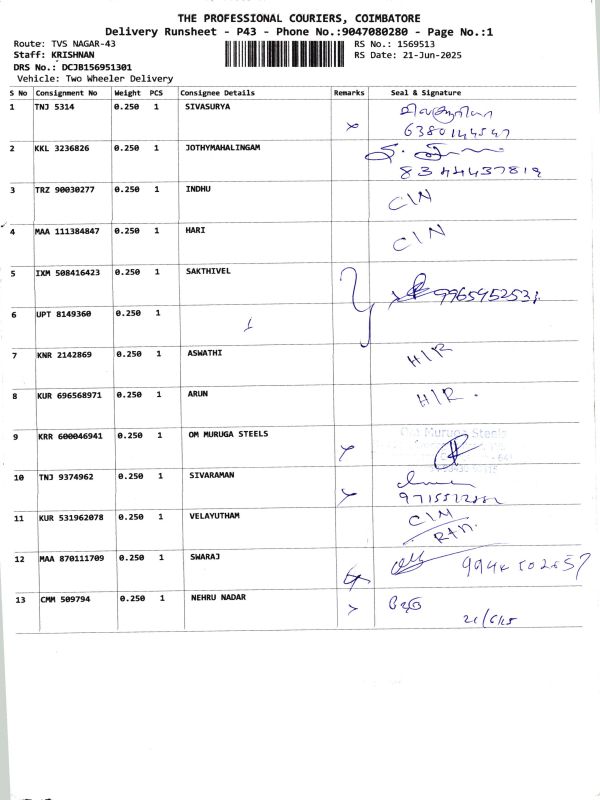 THE PROFESSIONAL COURIERS, COIMBATORE
Delivery Runsheet - P43 - Phone No.:9047080280 - Page No.:1
Route: TVS NAGAR-43 RS No.: 1569513
Staff: KRISHNAN RS Date: 21-Jun-2025
DRS No.: DCJB156951301
Vehicle: Two Wheeler Delivery
S No Consignment No Weight PCS Consignee Details Remarks Seal & Signature
1 TNJ 5314 0.250 1 SIVASURYA
6380144547
2 KKL 3236826 0.250 1 JOTHYMAHALINGAM
8344437819
3 TRZ 90030277 0.250 1 INDHU C/N
4 MAA 111384847 0.250 1 HARI C/N
5 IXM 508416423 0.250 1 SAKTHIVEL 9965952531
6 UPT 8149360 0.250 1
7 KNR 2142869 0.250 1 ASWATHI H/R
8 KUR 696568971 0.250 1 ARUN H/R.
9 KRR 600046941 0.250 1 OM MURUGA STEELS Om Muruga Steels
10 TNJ 9374962 0.250 1 SIVARAMAN
11 KUR 531962078 0.250 1 VELAYUTHAM C/N
Rtn.
12 MAA 870111709 0.250 1 SWARAJ
13 CMM 509794 0.250 1 NEHRU NADAR
21/6/25